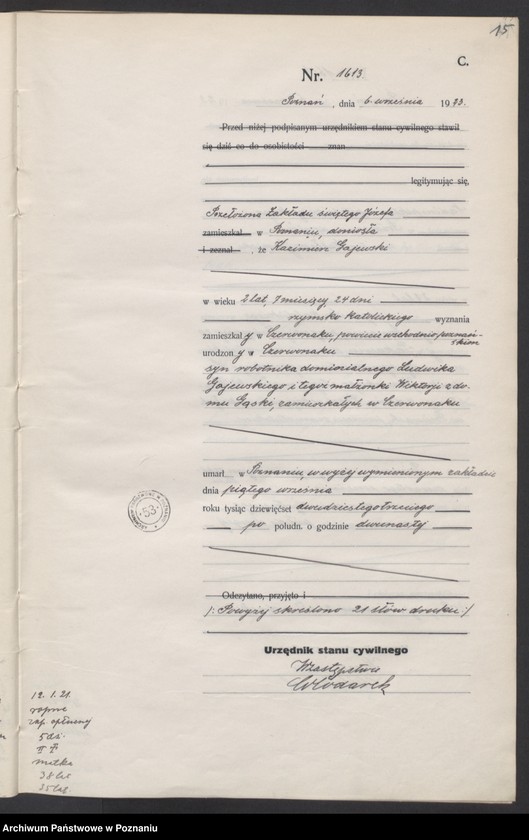 15
C.
Nr. 1613.
Poznań, dnia 6 września 1923.
Przed niżej podpisanym urzędnikiem stanu cywilnego stawił
się dziś co do osobistości znan
legitymując się,
Przełożona Zakładu świętego Józefa
zamieszkał w Poznaniu, doniosła
i zeznał , że Kazimierz Gajewski
w wieku 2 lat, 7 miesięcy, 24 dni
rzymsko katolickiego wyznania
zamieszkały w Czerwonaku, powiecie wschodnio poznań-
skim
urodzony w Czerwonaku
syn robotnika dominialnego Ludwika
Gajewskiego i tegoż małżonki Wiktorji z do-
mu Gąski, zamieszkałych w Czerwonaku
umarł w Poznaniu, w wyżej wymienionym zakładzie
dnia piątego września
roku tysiąc dziewięćset dwudziestego trzeciego
po połudn. o godzinie dwunastej
Odczytano, przyjęto i
/: Powyżej skreślono 21 słów druku :/
Urzędnik stanu cywilnego
W zastępstwie
Włodarek
53
12. 1. 21.
ropne
zap. opłucnej
5 dz.
matka
38 lat
Archiwum Państwowe w Poznaniu